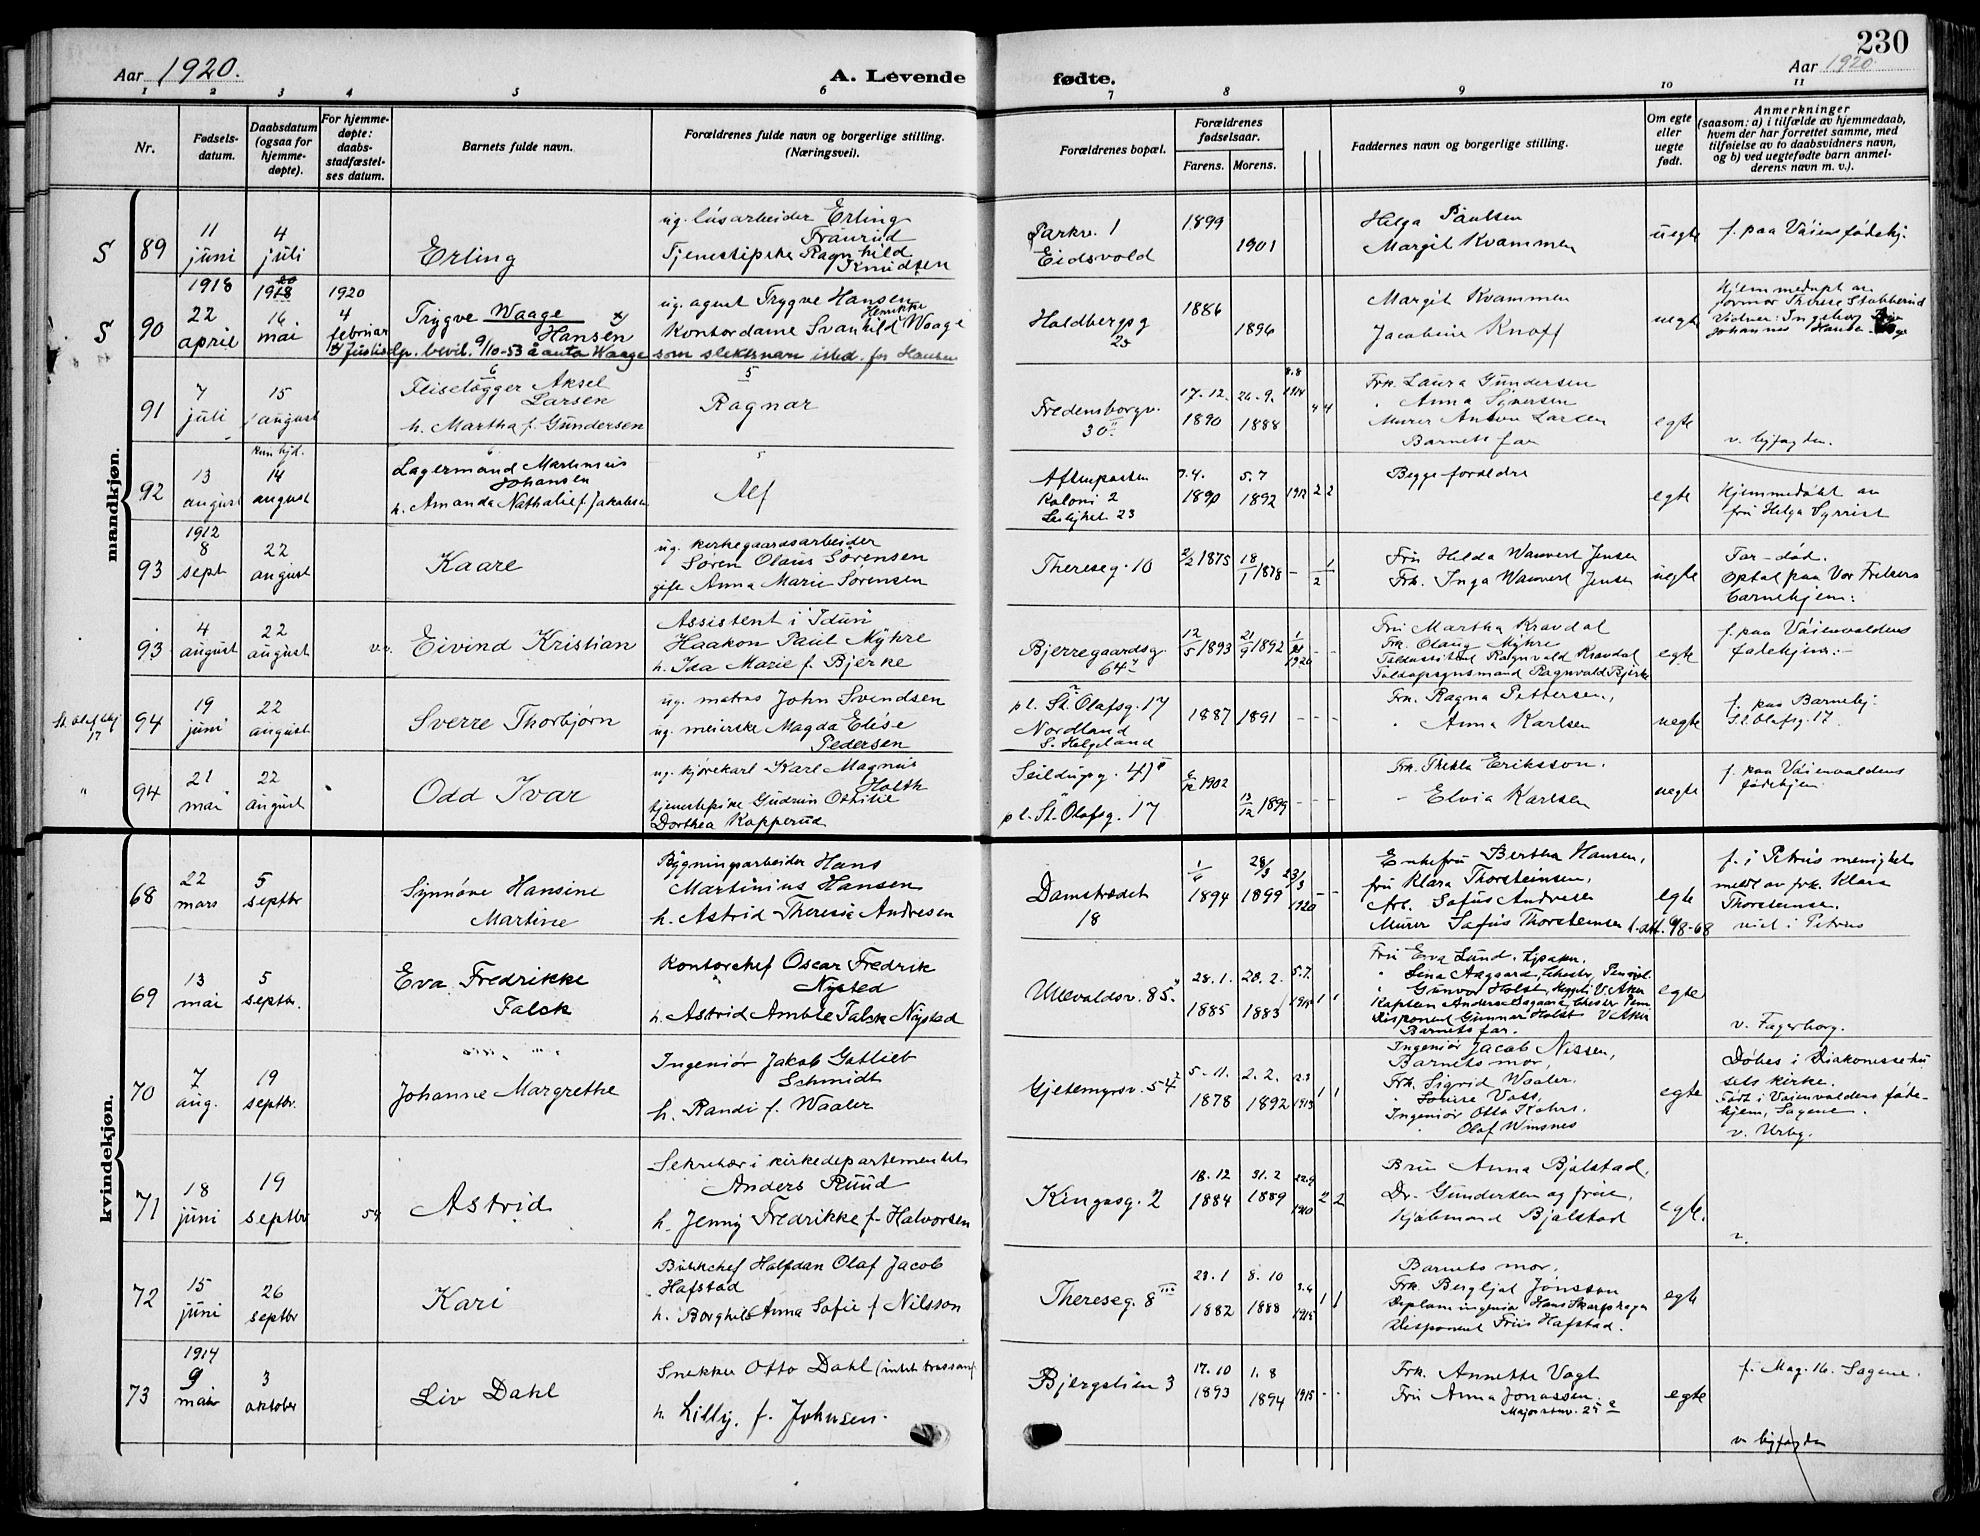 230
Aar 1920.
A. Levende fødte.
Aar 1920
1 2 3 4 5 6 7 8 9 10 11
Nr.
Fødsels-
datum.
Daabsdatum
(ogsaa for
hjemme-
døpte).
For hjemme-
døpte:
daabs-
stadfæstel-
ses datum.
Barnets fulde navn.
Forældrenes fulde navn og borgerlige stilling.
(Næringsvei).
Forældrenes bopæl.
Forældrenes
fødselsaar.
Farens. Morens.
Faddernes navn og borgerlige stilling.
Om egte
eller
uegte
født.
Anmerkninger
(saasom: a) i tilfælde av hjemmedaab,
hvem der har forrettet samme, med
tilføielse av to daabsvidners navn,
og b) ved uegtefødte barn anmel-
derens navn m. v.).
mandkjøn.
S 89
11
juni
4
juli
Erling
ug. løsarbeider Erling
Tjenestipike Ragnhild
Knudsen
Parkv. 1
Eidsvold
1899
1901
Helga Paulsen
Margit Kvammen
uegte
f. paa Vaiens fødehj.
S 90
1918
22
april
16
mai
1920
4
februar
Trygve Waage
Hansen
bevil. 9/10-53 å anta Waage som slektsnavn isted. for Hansen
ug. agent Trygve Hansen
Kontordame Svanhild Waage
Holdbergsg
23
1886
1896
Margit Kvammen
Jacobine Knoff
uegte
Hjemmedøpt av
farmor Therese Stubberud
Vidner: Ingeborg
91
7
juli
15
august
Fliselægger Aksel
Larsen
h. Martha f. Gundersen
Ragnar
Fredensborgv.
30 II
17.12.
1890
26.9.
1888
8.8
1914
4 4
Frk. Laura Gundersen
Anna Syversen
Murer Anton Larsen
Barnets far
egte
v. byfogden.
92
13
august
14
august
Lagermand Martinius
Johansen
h. Amanda Nathalie f. Jakobsen
Alf
Aftenposten
Koloni 2
23
7.4.
1890
5.7
1892
1912 2 2
Begge forældre
egte
Hjemmedøbt av
fru Helga Syrrist
93
1912
8
sept
22
august
Kaare
ug. kirkegaardsarbeider
Søren Olaus Sørensen
gift Anna Marie Sørensen
Thereseg. 10
2/2 1875
18/1 1878
Fru Helda Wauvert Jensen
Frk. Inga Wauvert Jensen
uegte
Far-død.
Optat paa Vor Frelsers
barnehjem:
93
4
august
22
august
Eivind Kristian
Assistent i Idun
Haakon Paul Myhre
h. Ida Marie f. Bjerke
Bjerregaardsg.
64
12/5 1893
21/9 1892
1920
Fru Martha Kravdal
Frk. Olaug Myhre
Toldassistent Ragnvald Kravdal
Toldopsynsmand Ragnvald Bjerke
egte
f. paa Vaienvoldens
fødehjem:
St. Olafs
17
94
19
juni
22
august
Sverre Thorbjørn
ug. matros John Svendsen
ug. meierske Magda Elise
Pedersen
pl. St. Olafsg. 17
Nordland
S. Helgeland
1887
1891
Frk. Ragna Pettersen,
" Anna Karlsen
uegte
f. paa Barnehj.
St. Olafsg. 17.
"
94
21
mai
22
august
Odd Ivar
ug. kjørekarl Karl Magnus
Holth
tjenestepike Gudrun Othilie
Dorthea Kopperud
Seildugsg. 41 II
pl. St. Olafsg. 17
1902
13/12 1899
Frk. Thekla Eriksson.
" Elvia Karlsen
uegte
f. paa Vaienvoldens
fødehjem
kvindekjøn.
68
22
mars
5
septbr
Synnøve Hansine
Martine
Bygningsarbeider Hans
Martinius Hansen
h. Astrid Theresie Andresen
Damstrædet
18
1894
28/3
1899
23/3
1920
Enkefru Bertha Hansen,
fru Klara Thorsteinsen,
Arb. Sofus Andresen
Murer Sofus Thorsteinsen
egte
f. i Petrus menighet
meldt av frk. Klara
Thorsteinsen.
viet i Petrus
69
13
mai
5
septbr.
Eva Fredrikke
Falck
Kontorchef Oscar Fredrik
Nysted
h. Astrid Amble Falck Nysted
Ullevaldsv. 85.
28.1.
1885
28.2.
1883
5.7.
1 1
Fru Eva Lund,
" Lina Aagaard,
" Gunvor Holst, V. Aker
Kaptein Anders Aagaard
Disponent Gunnar Holst V. Aker
Barnets far.
egte
v. Fagerborg.
70
7
aug.
19
septbr.
Johanne Margrethe
Ingeniør Jakob Gotlieb
Schmidt
h. Randi f. Waaler
Gjetemyrsv. 54
5.11.
1878
2.2.
1892
1 1
Ingeniør Jacob Nissen,
Barnets mor,
Frk. Sigrid Waaler.
" Louise Voss,
Ingeniør Otto Kahrs.
" Olaf Winsnes
egte
Døbes i Diakonissehu
sets kirke.
Født i Vaienvoldens føde-
hjem, Sagene.
71
18
juni
19
septbr
54
Astrid
Sekretær i kirkedepartementet
Anders Ruud
h. Jenny Fredrikke f. Halvorsen
Kingosg. 2
18.12
1884
31.2
1889
22.9
1910
2 2
Fru Anna Bjølstad,
Dr. Gundersen og frue,
Kjøbmand Bjølstad
egte.
72
15
juni
26
septbr
Kari
Halfdan Olaf Jacob
Hafstad
h. Borghild Anna Sofie f. Nilsson
Thereseg. 8 III
28.1
1882
8.10
1888
1 1
Barnets mor.
Frk. Bergljot Jonsson
Diplomingeniør Hans
Disponent Friis Hafstad.
egte
73
1914
9
mai
3
oktober
Liv Dahl
Snekker Otto Dahl
h. Lilly. f. Johnsen.
Bjergslien 3
17.10
1893
1.8
1894
1915
Frk. Annette Vogt
Fru Anna Jonassen.
Majorstuv. 25
egte
f. Mag. 16. Sagene.
v byfogden